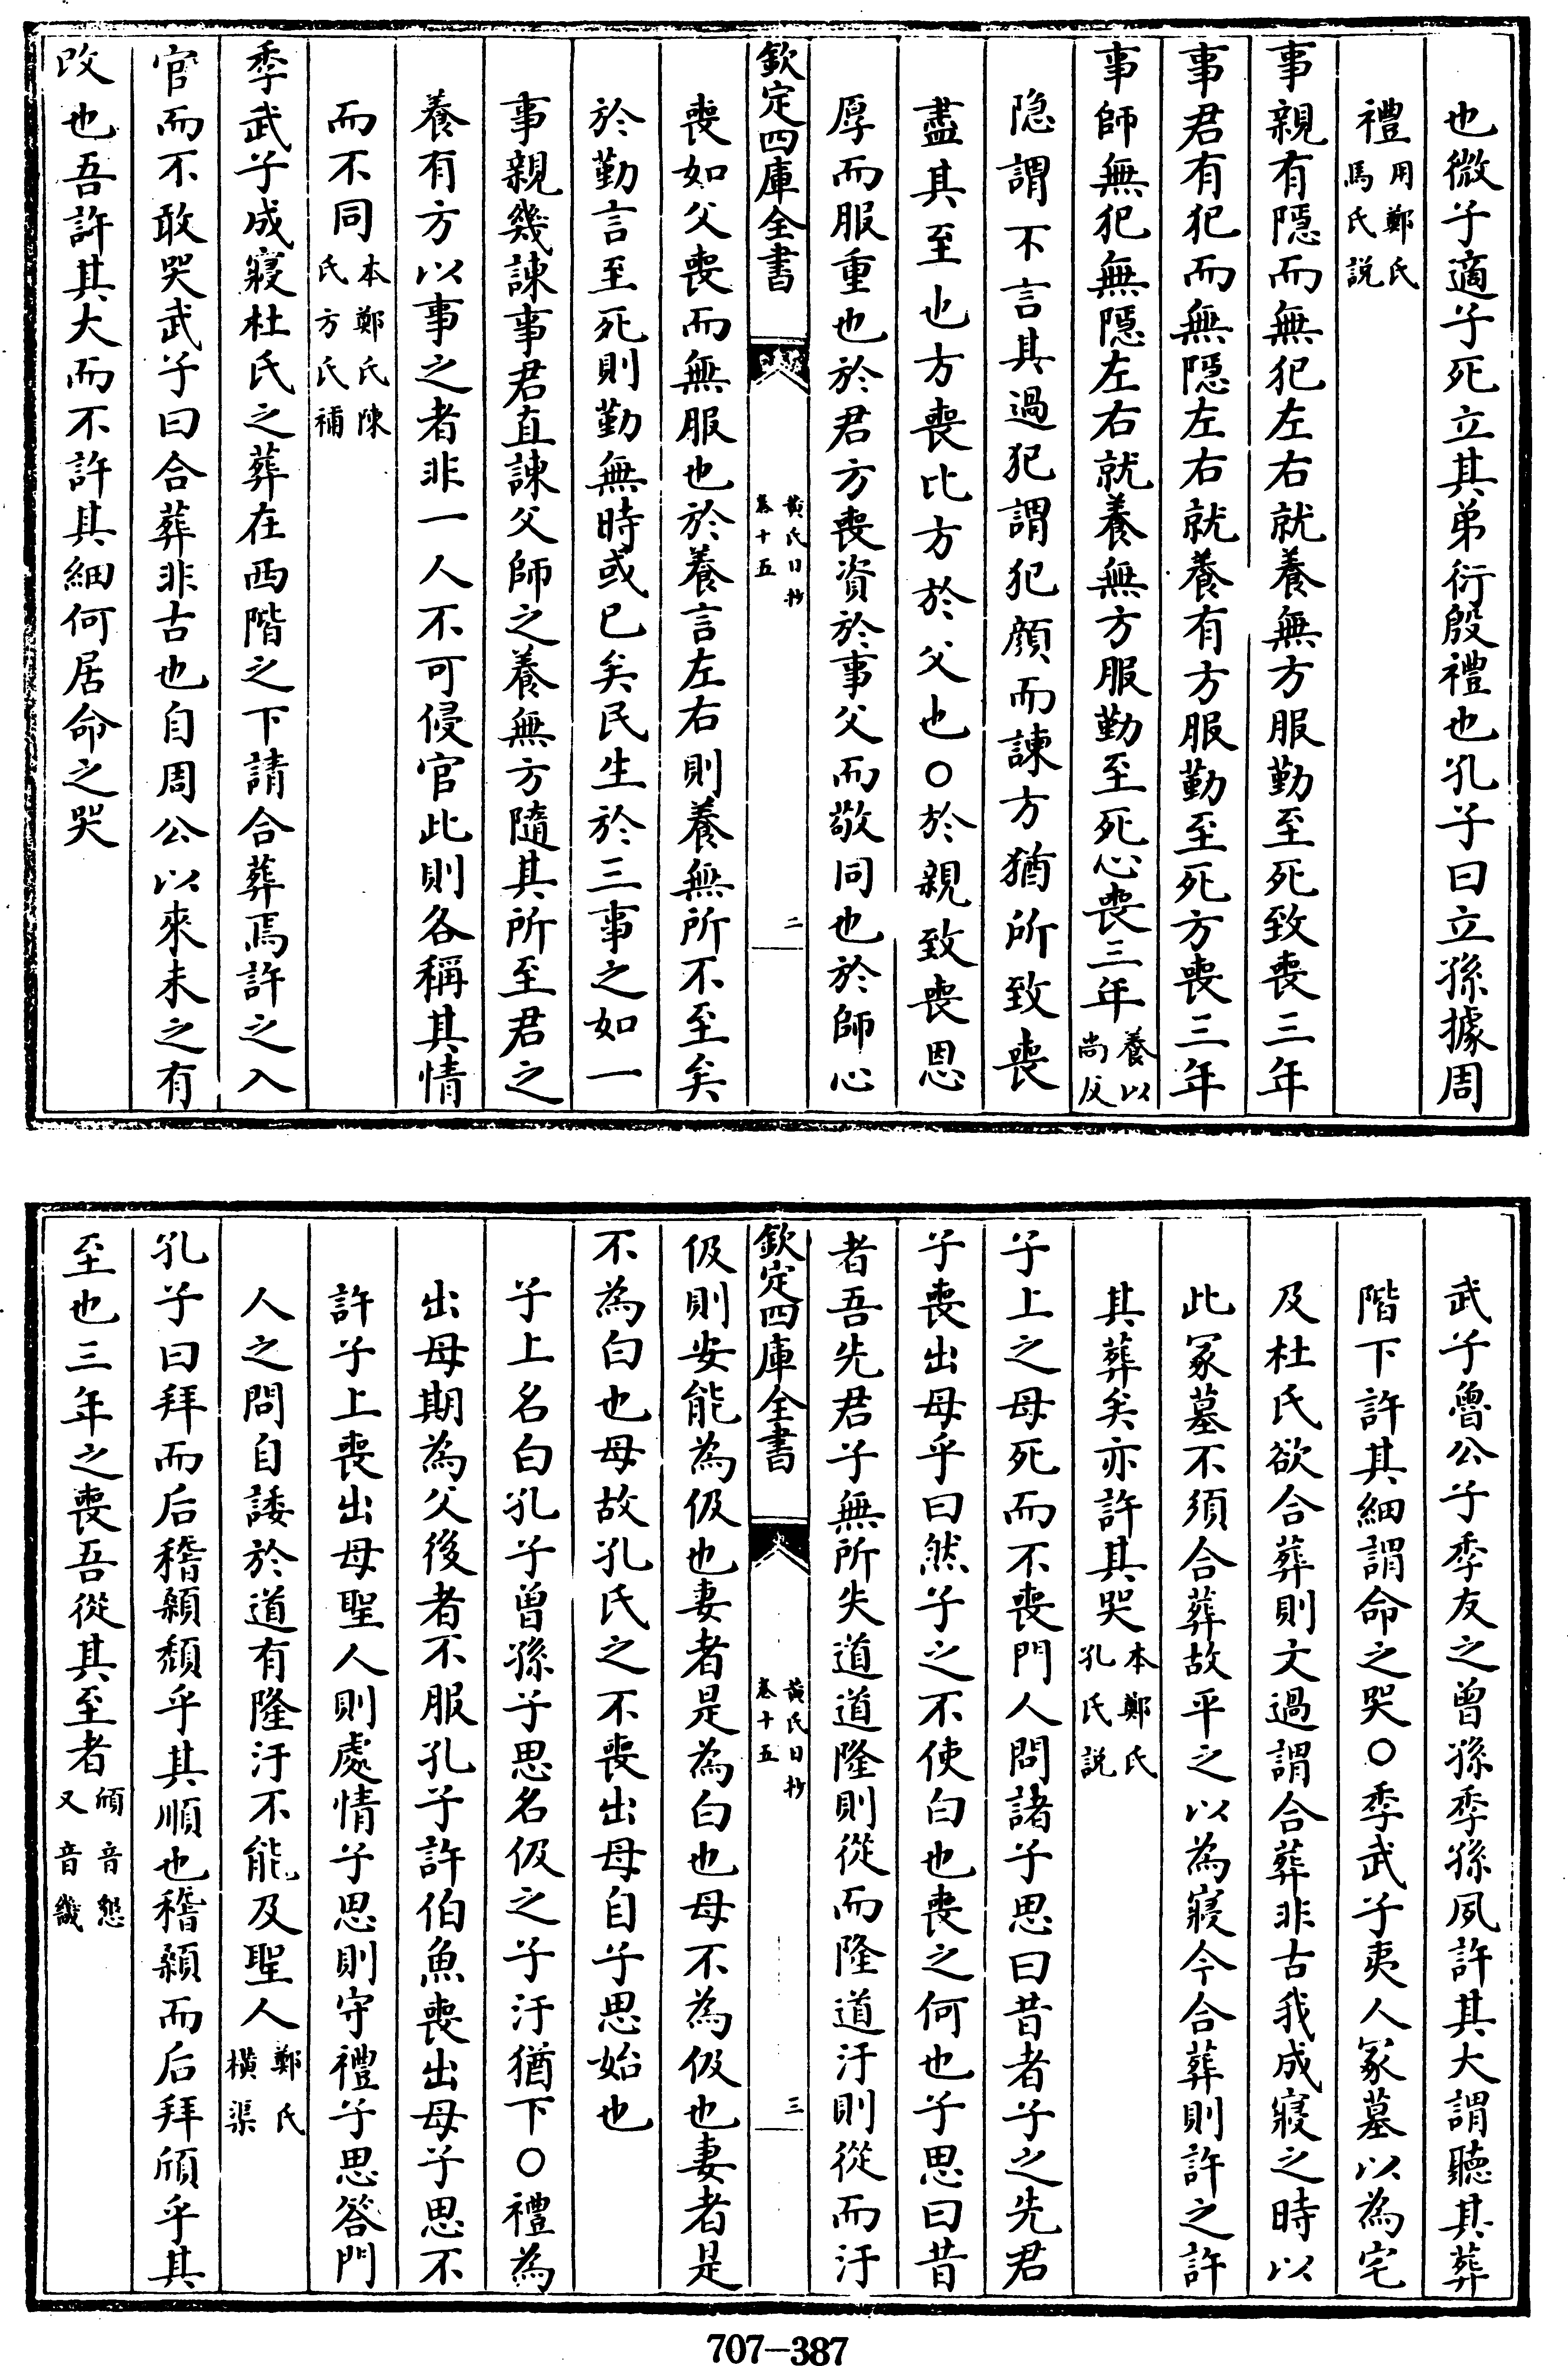 也微子適子死立其弟衍殷禮也孔子曰立孫據周
禮用鄭氏馬氏説
事親有隱而無犯左右就養無方服勤至死致喪三年
事君有犯而無隱左右就養有方服勤至死方喪三年
事師無犯無隱左右就養無方服勤至死心喪三年養以尚反
隱謂不言其過犯謂犯顔而諫方猶所致喪
盡其至也方喪比方於父也○於親致喪恩
厚而服重也於君方喪資於事父而敬同也於師心
欽定四庫全書
黄氏日抄
卷十五
二
喪如父喪而無服也於養言左右則養無所不至矣
於勤言至死則勤無時或已矣民生於三事之如一
事親幾諫事君直諫父師之養無方隨其所至君之
養有方以事之者非一人不可侵官此則各稱其情
而不同本鄭氏陳氏方氏補
季武子成寢杜氏之葬在西階之下請合葬焉許之入
官而不敢哭武子曰合葬非古也自周公以來未之有
改也吾許其大而不許其細何居命之哭
武子魯公子季友之曾孫季孫夙許其大謂聽其葬
階下許其細謂命之哭○季武子夷人冢墓以為宅
及杜氏欲合葬則文過謂合葬非古我成寢之時以
此冢墓不須合葬故平之以為寢今合葬則許之許
其葬矣亦許其哭本鄭氏孔氏説
子上之母死而不喪門人問諸子思曰昔者子之先君
子喪出母乎曰然子之不使白也喪之何也子思曰昔
者吾先君子無所失道道隆則從而隆道汙則從而汙
欽定四庫全書
黄氏日抄
卷十五
三
伋則安能為伋也妻者是為白也母不為伋也妻者是
不為白也母故孔氏之不喪出母自子思始也
子上名白孔子曾孫子思名伋之子汙猶下○禮為
出母期為父後者不服孔子許伯魚喪出母子思不
許子上喪出母聖人則處情子思則守禮子思答門
人之問自諉於道有隆汙不能及聖人鄭氏横渠
孔子曰拜而后稽顙頽乎其順也稽顙而后拜頎乎其
至也三年之喪吾從其至者頎音懇又音畿
707-387